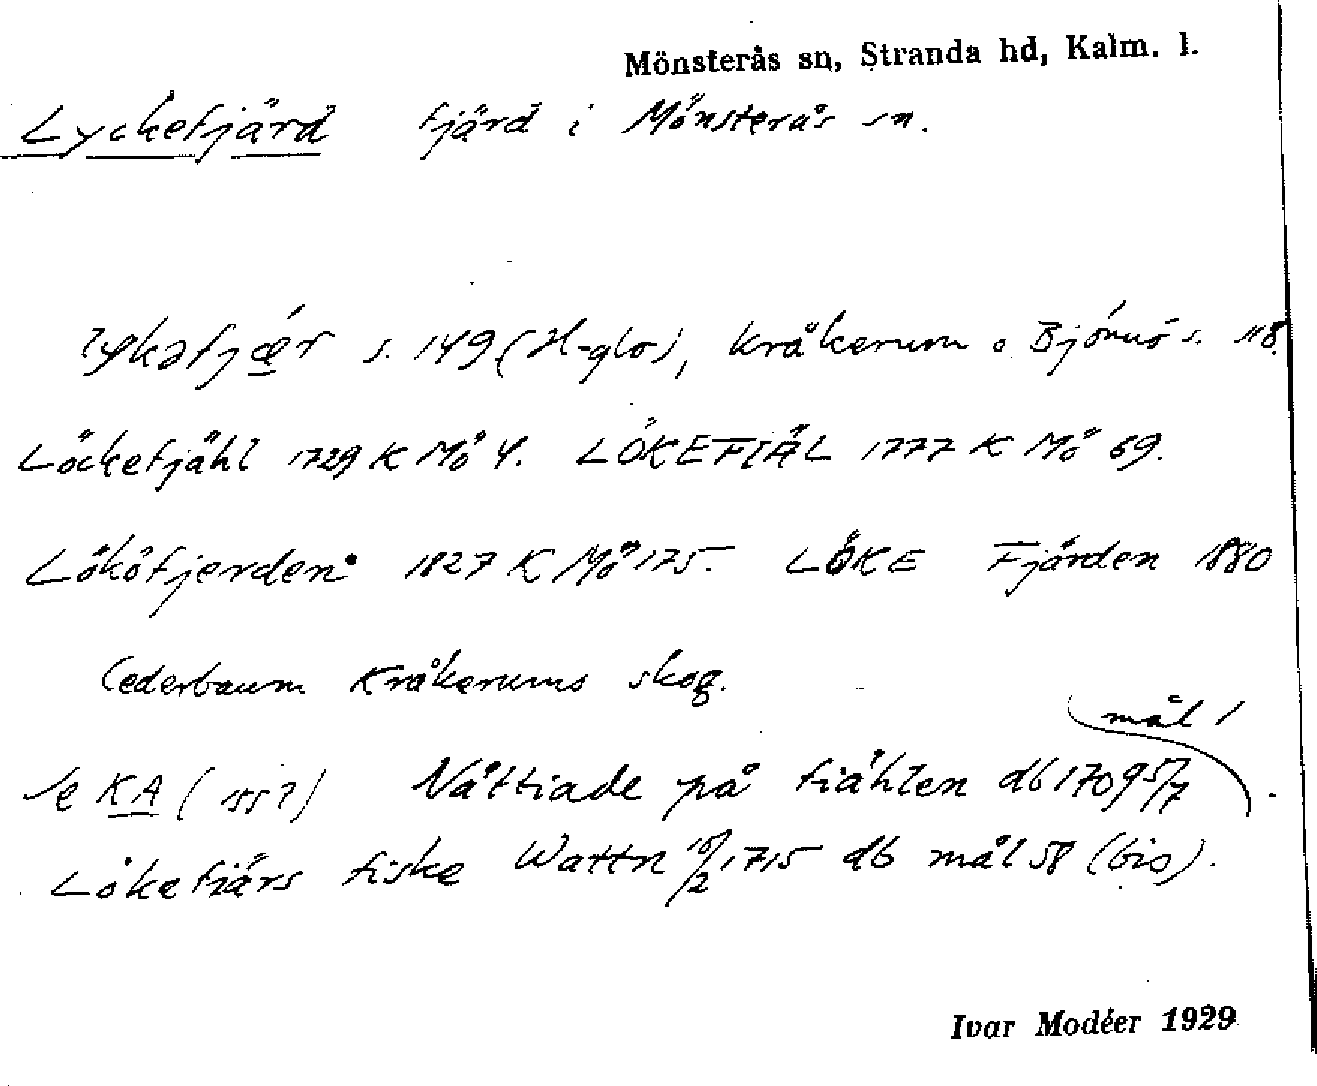 Mönsterås sn, Stranda hd, Kalm. l.
Lyckefjärd fjärd i Mönsterås sn.
s. 149 (Hl-glo), Kråkerum o Björnö s. 118.
Löckefjähl 1729 K Mö 4. LÖKEFIÄL 1777 K Mö 69.
Lököfjerden 1827 K Mö 175. LÖKE Fjärden 1880
Cederbaum Kråkerums skog.
mål 1
Se KA (155?) Nättiade på fiählen db 1709 5/7.
Lökefiärs fiske Wattn 10/2 1715 db mål 58 (bis).
Ivar Modéer 1929